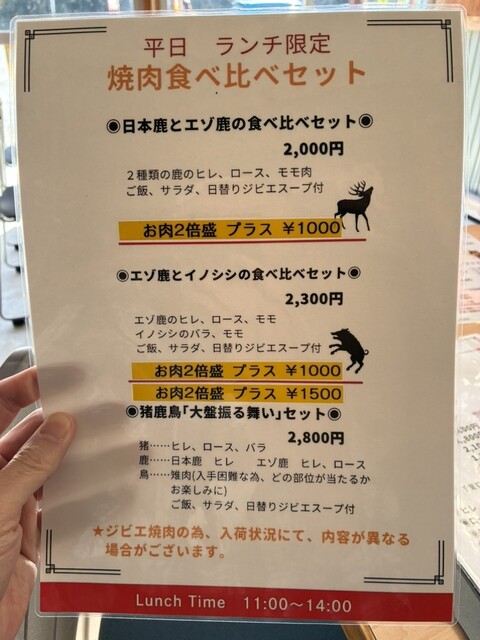 平日　ランチ限定
焼肉食べ比べセット
◉日本鹿とエゾ鹿の食べ比べセット◉
2,000円
２種類の鹿のヒレ、ロース、モモ肉
ご飯、サラダ、日替りジビエスープ付
お肉2倍盛 プラス ¥1000
◉エゾ鹿とイノシシの食べ比べセット◉
2,300円
エゾ鹿のヒレ、ロース、モモ
イノシシのバラ、モモ
ご飯、サラダ、日替りジビエスープ付
お肉2倍盛 プラス ¥1000
お肉2倍盛 プラス ¥1500
◉猪鹿鳥「大盤振る舞い」セット◉
2,800円
猪……ヒレ、ロース、バラ
鹿……日本鹿　ヒレ　　エゾ鹿　ヒレ、ロース
鳥……雉肉(入手困難な為、どの部位が当たるか
お楽しみに)
ご飯、サラダ、日替りジビエスープ付
★ジビエ焼肉の為、入荷状況にて、内容が異なる
場合がございます。
Lunch Time　11:00～14:00